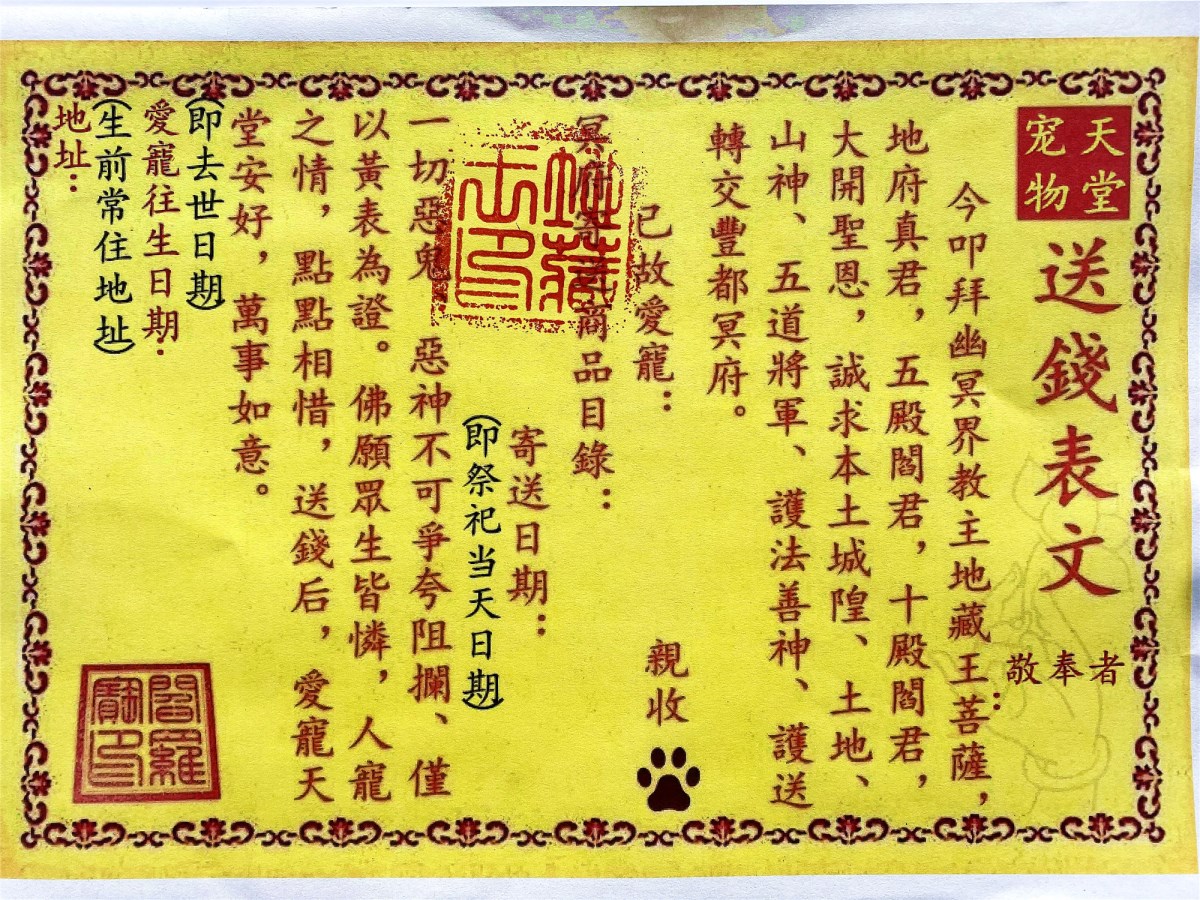 天堂
宠物
送錢表文
敬奉者：
今叩拜幽冥界教主地藏王菩薩，
地府真君，五殿閻君，十殿閻君，
大開聖恩，誠求本土城隍、土地、
山神、五道將軍、護法善神、護送
轉交豐都冥府。
已故愛寵：
親收
冥府寄送商品目錄：
寄送日期：
(即祭祀当天日期)
一切惡鬼、惡神不可爭夸阻攔、僅
以黃表為證。佛願眾生皆憐，人寵
之情，點點相惜，送錢后，愛寵天
堂安好，萬事如意。
(即去世日期)
愛寵往生日期：
(生前常住地址)
地址：
地藏
玉印
閻羅
寶印